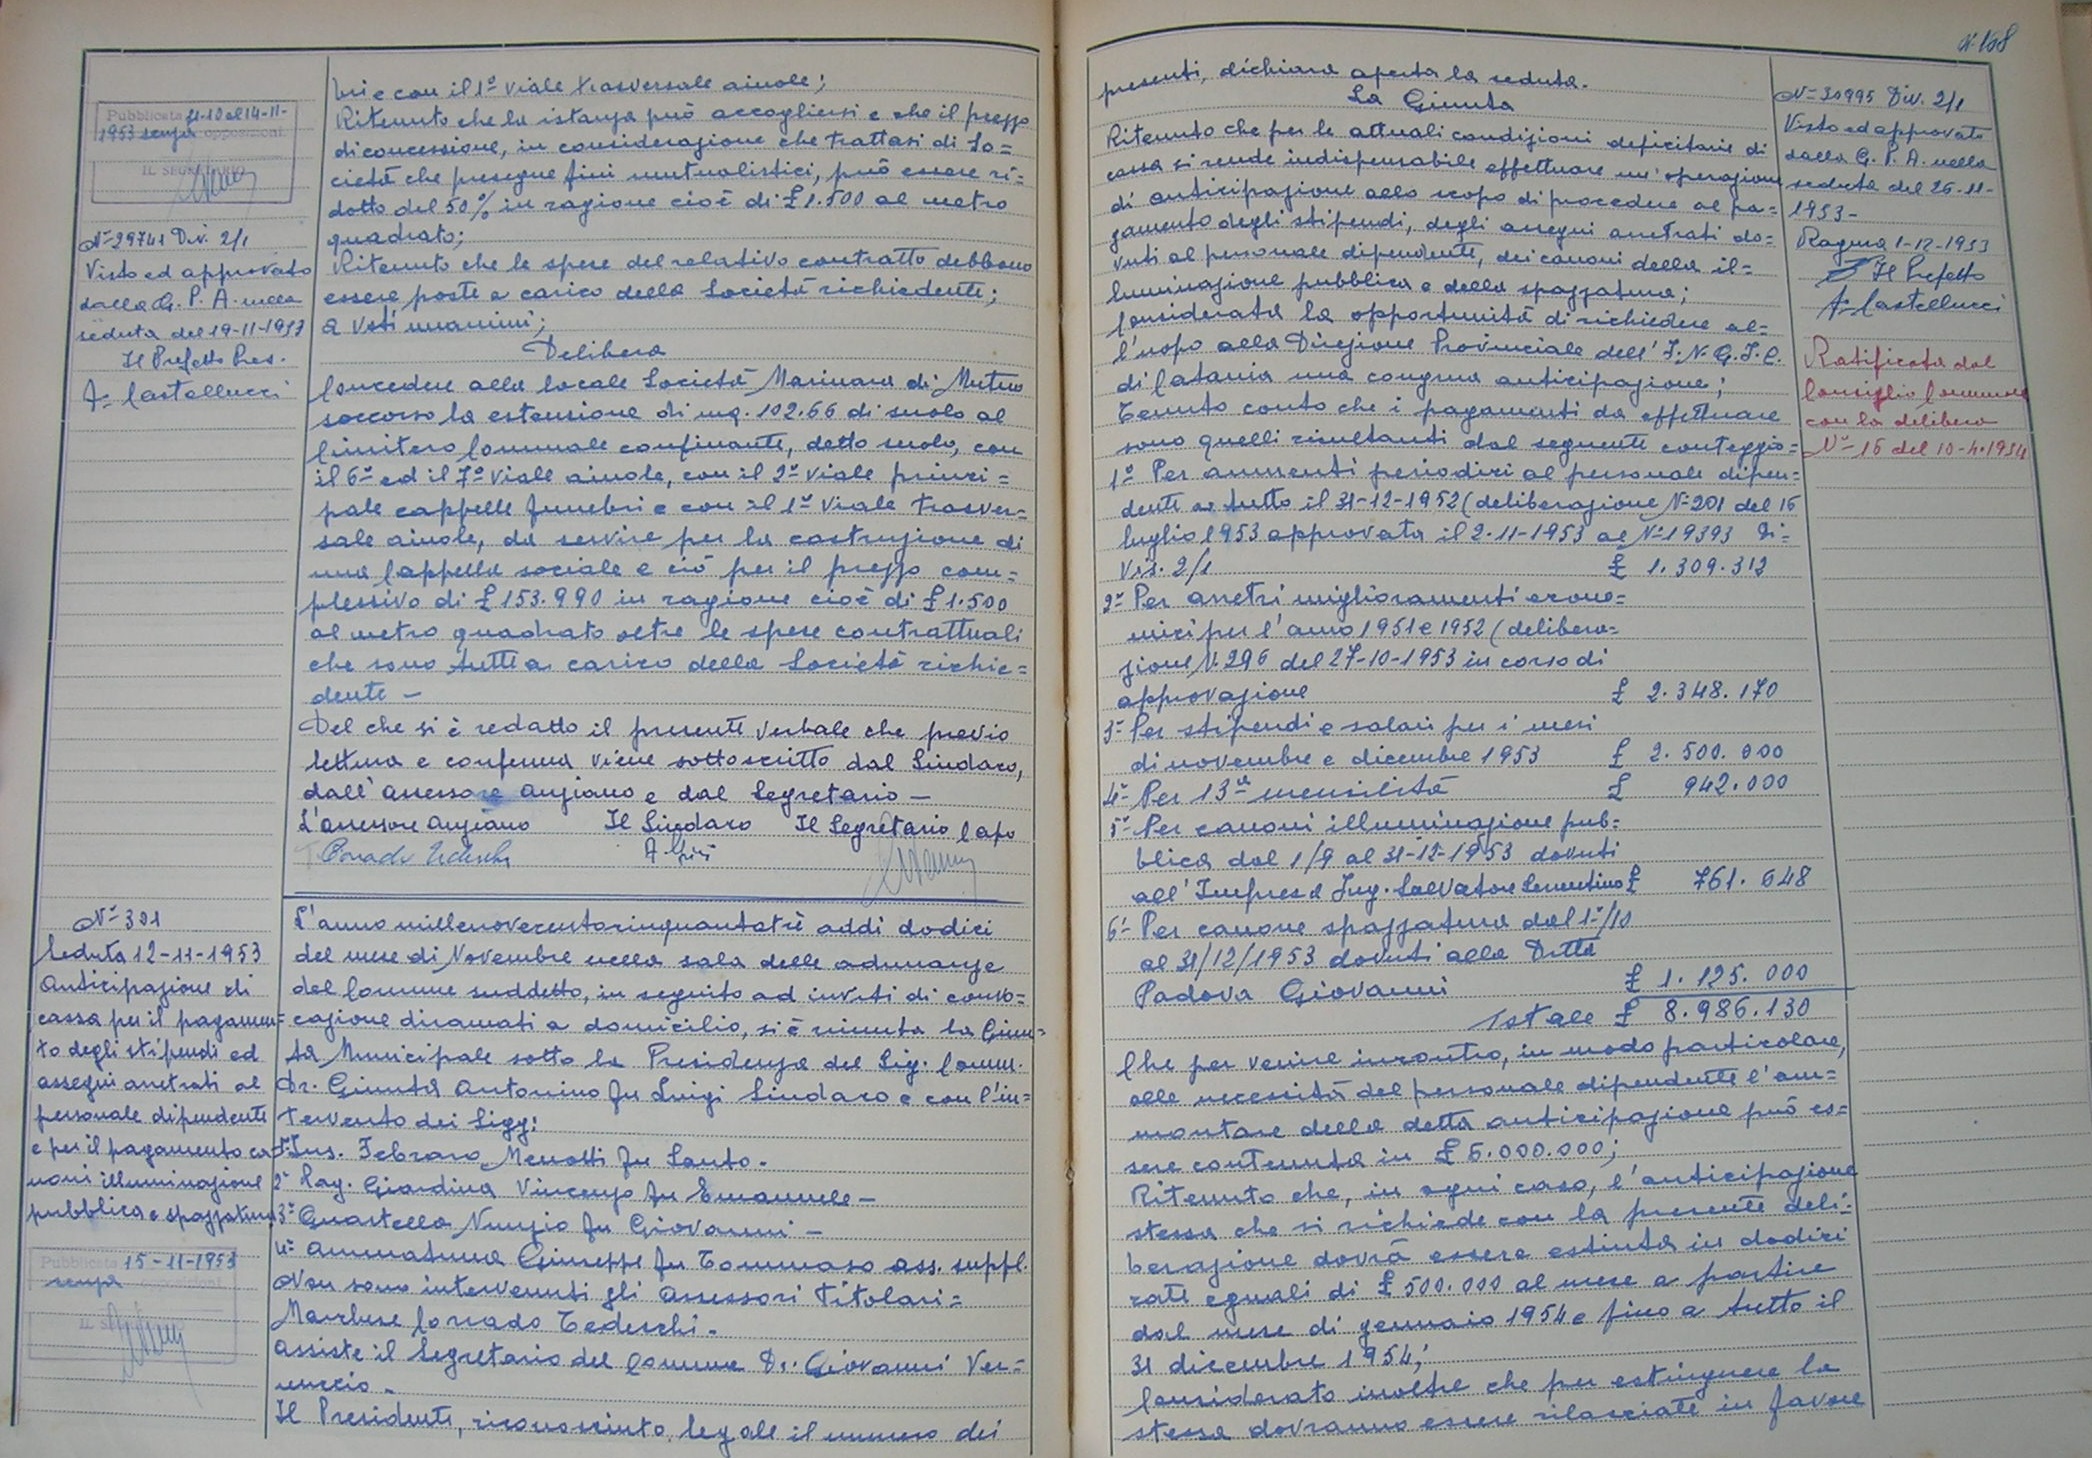 Pubblicata 31-10 al 14-11-
1953 senza opposizioni
IL SEGRETARIO
N° 29741 Div. 2/1
Visto ed approvato
dalla G. P. A. nella
seduta del 19-11-1953
Il Prefetto Pres.
F= Castellucci
bri e con il 1° viale trasversale aiuole;
Ritenuto che la istanza può accogliersi e che il prezzo
di concessione, in considerazione che trattasi di So=
cietà che presegue fini mutualistici, può essere ri=
dotto del 50% in ragione cioè di £ 1.500 al metro
quadrato;
Ritenuto che le spese del relativo contratto debbono
essere poste a carico della Società richiedente;
a voti unanimi;
Delibera
Concedere alla locale Società Marinara di Mutuo
soccorso la estensione di mq. 102.66 di suolo al
Cimitero Comunale confinante, detto suolo, con
il 6° ed il 7° viale aiuole, con il 2° viale princi=
pale cappelle funebri e con il 1° viale trasver=
sale aiuole, da servire per la costruzione di
una Cappella sociale e ciò per il prezzo com=
plessivo di £ 153.990 in ragione cioè di £ 1.500
al metro quadrato oltre le spese contrattuali
che sono tutti a carico della Società richie=
dente -
Del che si è redatto il presente verbale che previo
lettura e conferma viene sottoscritto dal Sindaco,
dall'assessore anziano e dal Segretario -
L'assessore anziano Il Sindaco Il Segretario Capo
Corrado Tedeschi
N° 301
Seduta 12-11-1953
Anticipazione di
cassa per il pagamen=
to degli stipendi ed
assegni arretrati al
personale dipendente
e per il pagamento ca=
noni illuminazione
pubblica e spazzatura
Pubblicata 15-11-1953
senza opposizioni
L'anno millenovecentocinquantatrè addì dodici
del mese di Novembre nella sala delle adunanze
del Comune suddetto, in seguito ad inviti di convo=
cazione diramati a domicilio, si è riunita la Giun=
ta Municipale sotto la Presidenza del Sig. Comm.
Dr. Giunta Antonino fu Luigi Sindaco e con l'in=
tervento dei Sigg:
1° Ins. Febraro Menotti fu Santo -
2° Rag. Giardina Vincenzo fu Emanuele -
3° Guastella Nunzio fu Giovanni -
4° Ammatuna Giuseppe fu Tommaso ass. suppl.
Non sono intervenuti gli Assessori Titolari=
Marchese Corrado Tedeschi -
Assiste il Segretario del Comune Dr. Giovanni Ver=
nuccio -
Il Presidente, riconosciuto legale il numero dei
N. 168
presenti, dichiara aperta la seduta.
La Giunta
Ritenuto che per le attuali condizioni deficitarie di
cassa si rende indispensabile effettuare un'operazione
di anticipazione allo scopo di procedere al pa=
gamento degli stipendi, degli assegni arretrati do=
vuti al personale dipendente, dei canoni della il=
luminazione pubblica e della spazzatura;
Considerata la opportunità di richiedere al=
l'uopo alla Direzione Provinciale dell'I.N.G.I.C.
di Catania una congrua anticipazione;
Tenuto conto che i pagamenti da effettuare
sono quelli risultanti dal seguente conteggio=
1° Per aumenti periodici al personale dipen=
dente a tutto il 31-12-1952 (deliberazione N° 201 del 16
luglio 1953 approvata il 2-11-1953 al N° 19393 Di=
vis. 2/1 £ 1.309.312
2° Per arretri miglioramenti econo=
mici per l'anno 1951 e 1952 (delibera=
zione N. 296 del 27-10-1953 in corso di
approvazione £ 2.348.170
3° Per stipendi e salari per i mesi
di novembre e dicembre 1953 £ 2.500.000
4° Per 13ª mensilità £ 942.000
5° Per canoni illuminazione pub=
blica dal 1/9 al 31-12-1953 dovuti
all'Impresa Ing. Salvatore Sorrentino £ 761.648
6° Per canone spazzatura dal 1°/10
al 31/12/1953 dovuti alla Ditta
Padova Giovanni £ 1.125.000
Totale £ 8.986.130
Che per venire incontro, in modo particolare,
alle necessità del personale dipendente l'am=
montare della detta anticipazione può es=
sere contenuta in £ 6.000.000;
Ritenuto che, in ogni caso, l'anticipazione
stessa che si richiede con la presente deli=
berazione dovrà essere estinta in dodici
rate eguali di £ 500.000 al mese a partire
dal mese di gennaio 1954 e fino a tutto il
31 dicembre 1954;
Considerato inoltre che per estinguere la
stessa dovranno essere rilasciate in favore
N= 30995 Div. 2/1
Visto ed approvato
dalla G. P. A. nella
seduta del 26-11-
1953-
Ragusa 1-12-1953
Il Prefetto
F= Castellucci
Ratificata dal
Consiglio Comunale
con la delibera
N° 16 del 10-4-1954